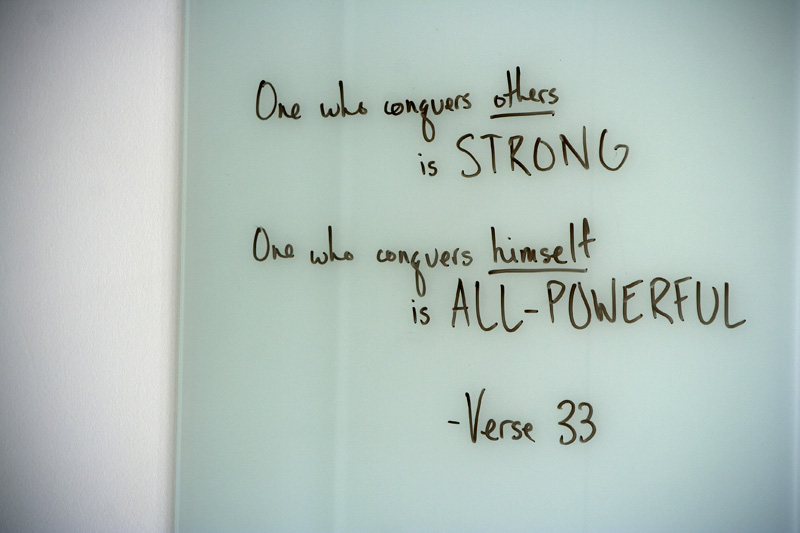 One who conquers others
is STRONG
One who conquers himself
is ALL-POWERFUL
-Verse 33